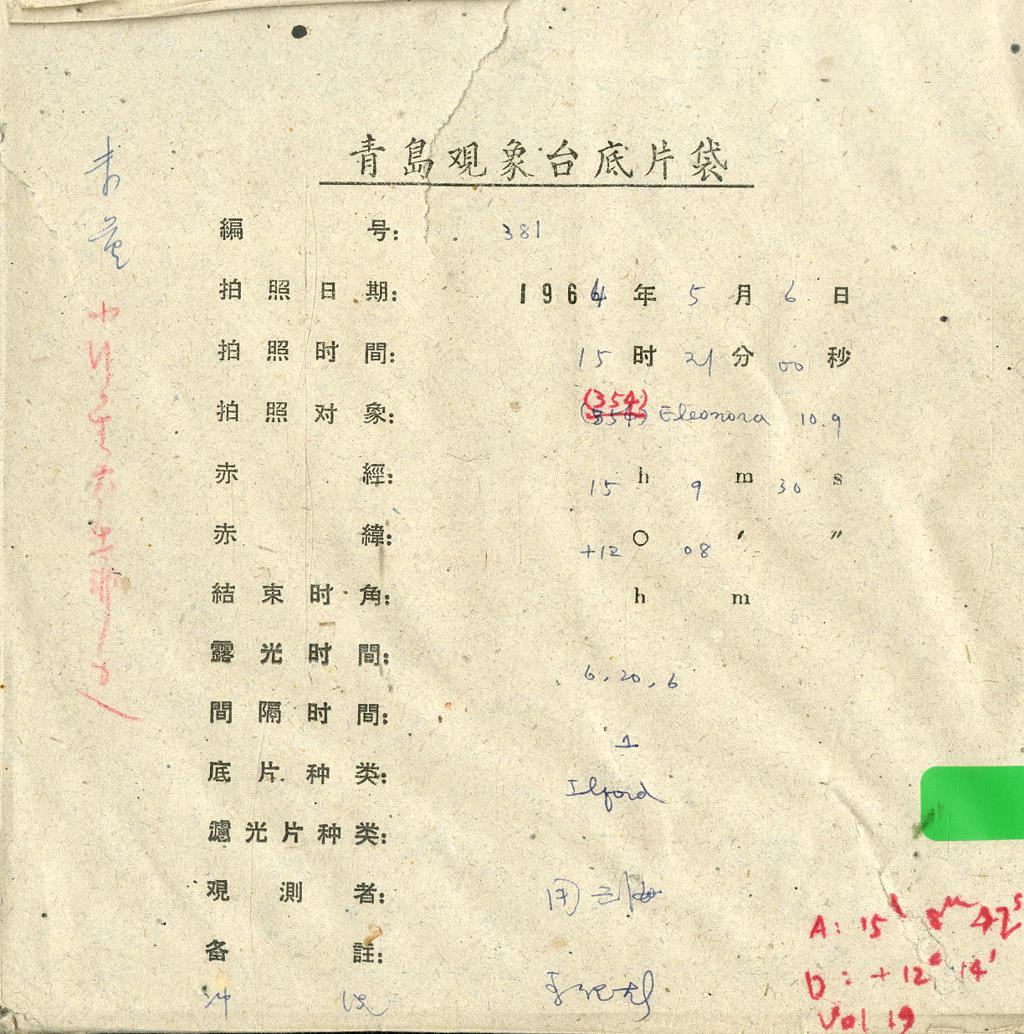 青島观象台底片袋
編 号: 381
拍照日期: 1964年5月6日
拍照时間: 15时21分00秒
(354)
拍照对象: (354) Eleonora 10.9
赤 經: 15h 9m 30s
赤 緯: +12° 08′ ″
結束时角: h m
露光时間: 6,20,6
間隔时間: 1
底片种类: Ilford
濾光片种类:
观測者: 周
备 註:
冲 洗
A: 15h 8m 42s
D: +12° 14′
Vol 19